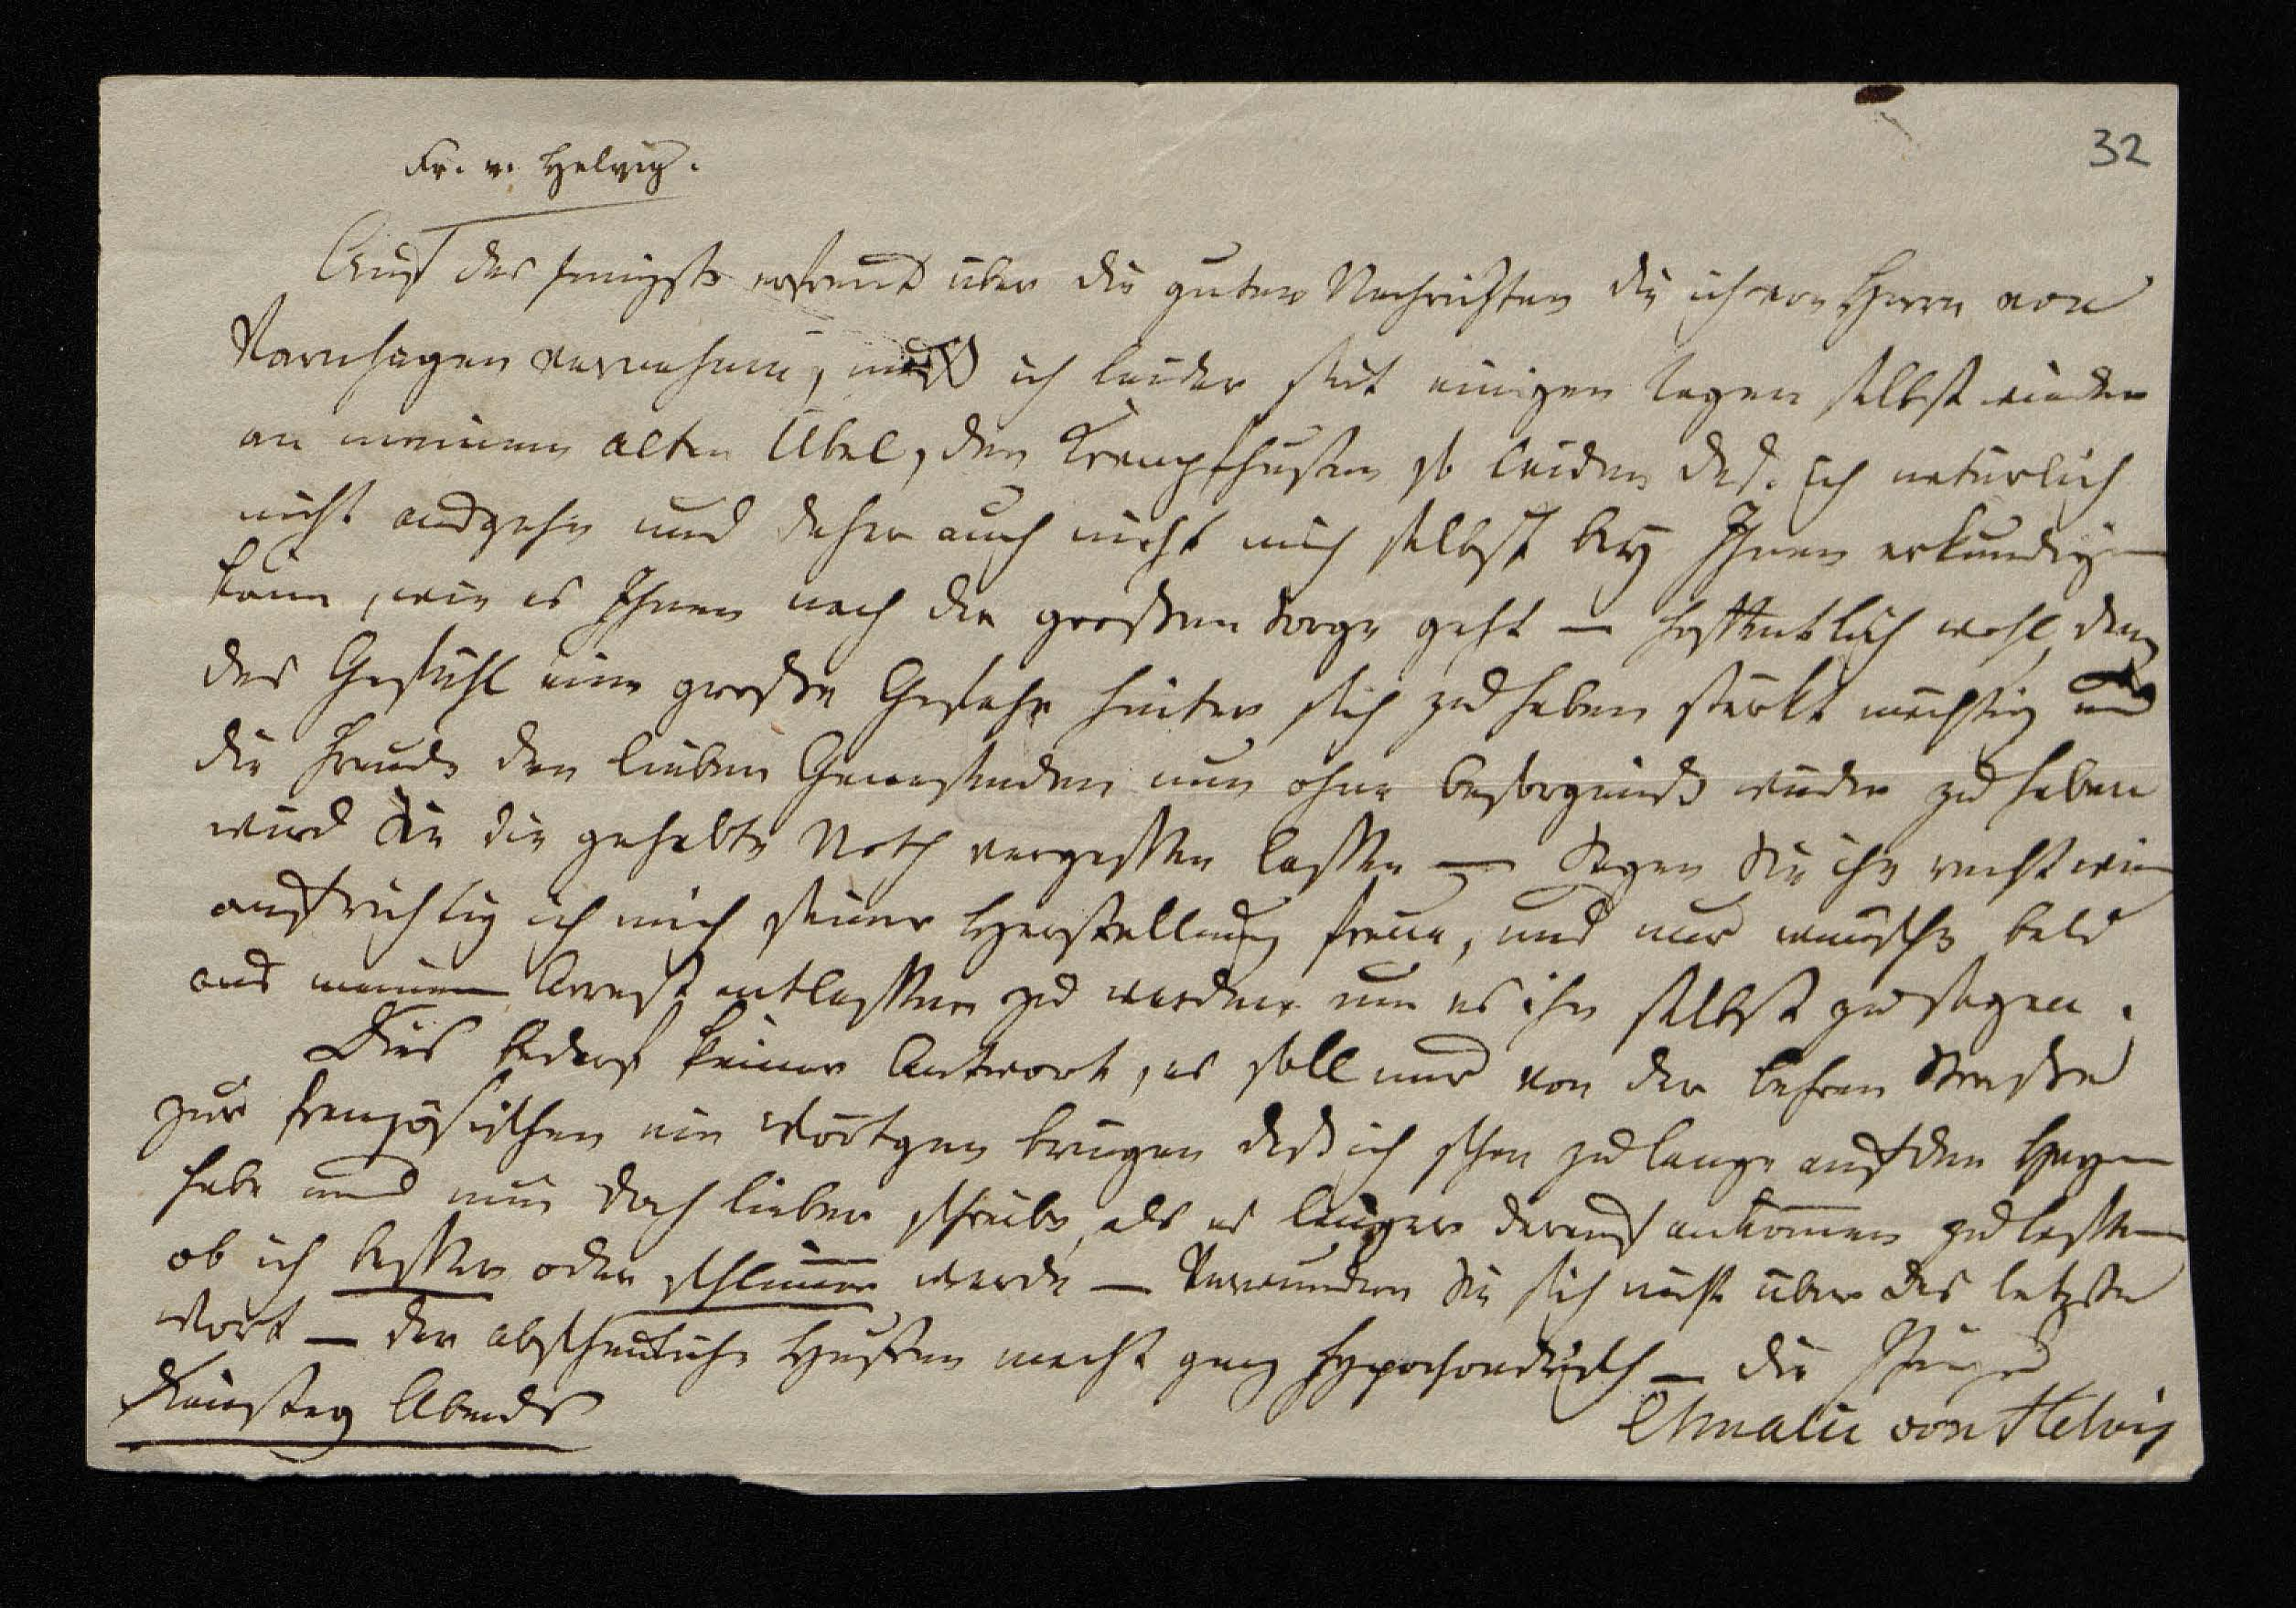 Fr. v. Helvig.
32
Auf das innigste erfreut über die guten Nachrichten die ich von Herrn von
Varnhagen vernehme, muß ich leider seit einigen Tagen selbst wieder
an meinem alten Übel, dem Krampfhusten so leiden daß ich natürlich
nicht ausgehn und daher auch nicht mich selbst bey Ihnen erkundigen
kann, wie es Ihnen nach der großen Sorge geht — hoffentlich wohl, denn
das Gefühl eine große Gefahr hinter sich zu haben stärkt mächtig und
die Freude den lieben Genesenden nun ohne Besorgniß wieder zu haben
wird Sie die gehabte Noth vergessen lassen — Sagen Sie ihm recht wie
aufrichtig ich mich seiner Herstellung freue, und nur wünsche bald
aus meinem Arrest entlassen zu werden um es ihm selbst zu sagen.
Dies bedarf keiner Antwort, es soll nur von der Behren Straße
zur französischen ein Wörtgen bringen das ich schon zu lange auf dem Herzen
habe und nun doch lieber schreibe, als es länger darauf ankommen zu lassen
ob ich besser oder schlimmer werde — Verwundern Sie sich nicht über das letzte
Wort — der abscheuliche Husten macht ganz hypochondrisch — die Ihrige
Dienstag Abends
Amalie von Helvig